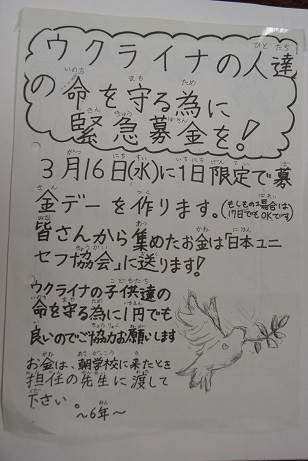 ウクライナの人達
の命を守る為に
緊急募金を!
3月16日(水)に1日限定で募
金デーを作ります。(もしもの場合は17日でもOKです)
皆さんから集めたお金は「日本ユニ
セフ協会」に送ります!
ウクライナの子供達の
命を守る為に1円でも
良いのでご協力お願いします
お金は、朝学校に来たとき
担任の先生に渡して
下さい。
~6年~